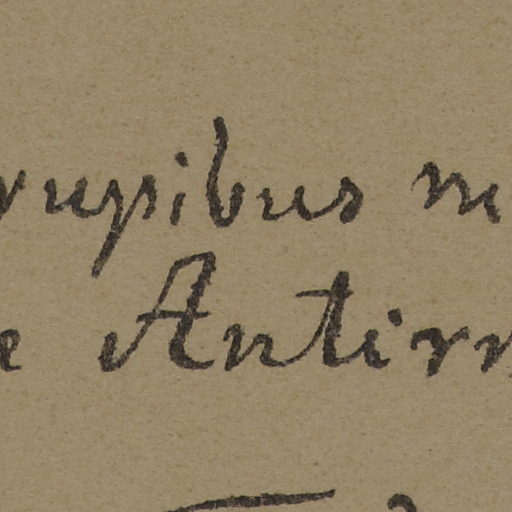 rupibus m
e Antirr